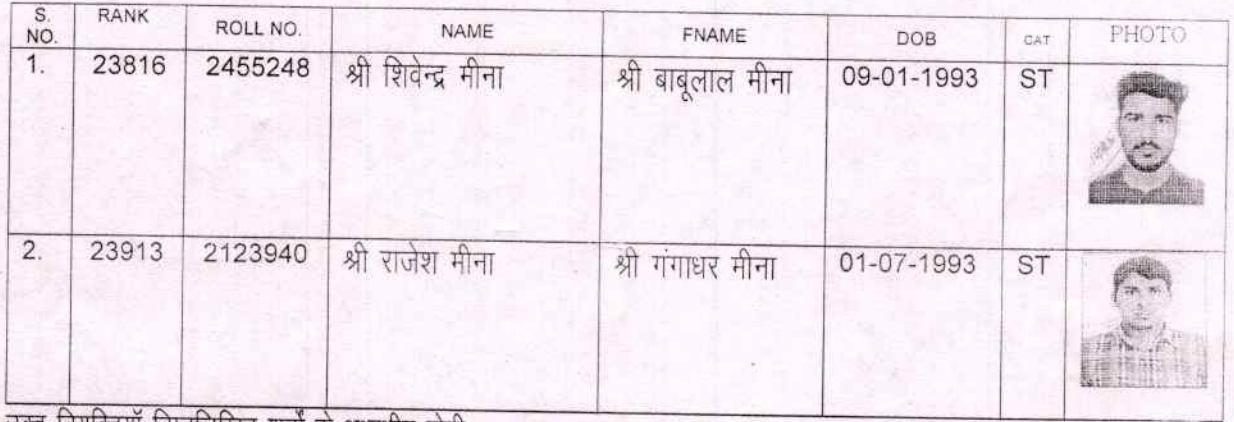 S. NO. RANK ROLL NO. NAME FNAME DOB CAT PHOTO
1. 23816 2455248 श्री शिवेन्द्र मीना श्री बाबूलाल मीना 09-01-1993 ST
2. 23913 2123940 श्री राजेश मीना श्री गंगाधर मीना 01-07-1993 ST